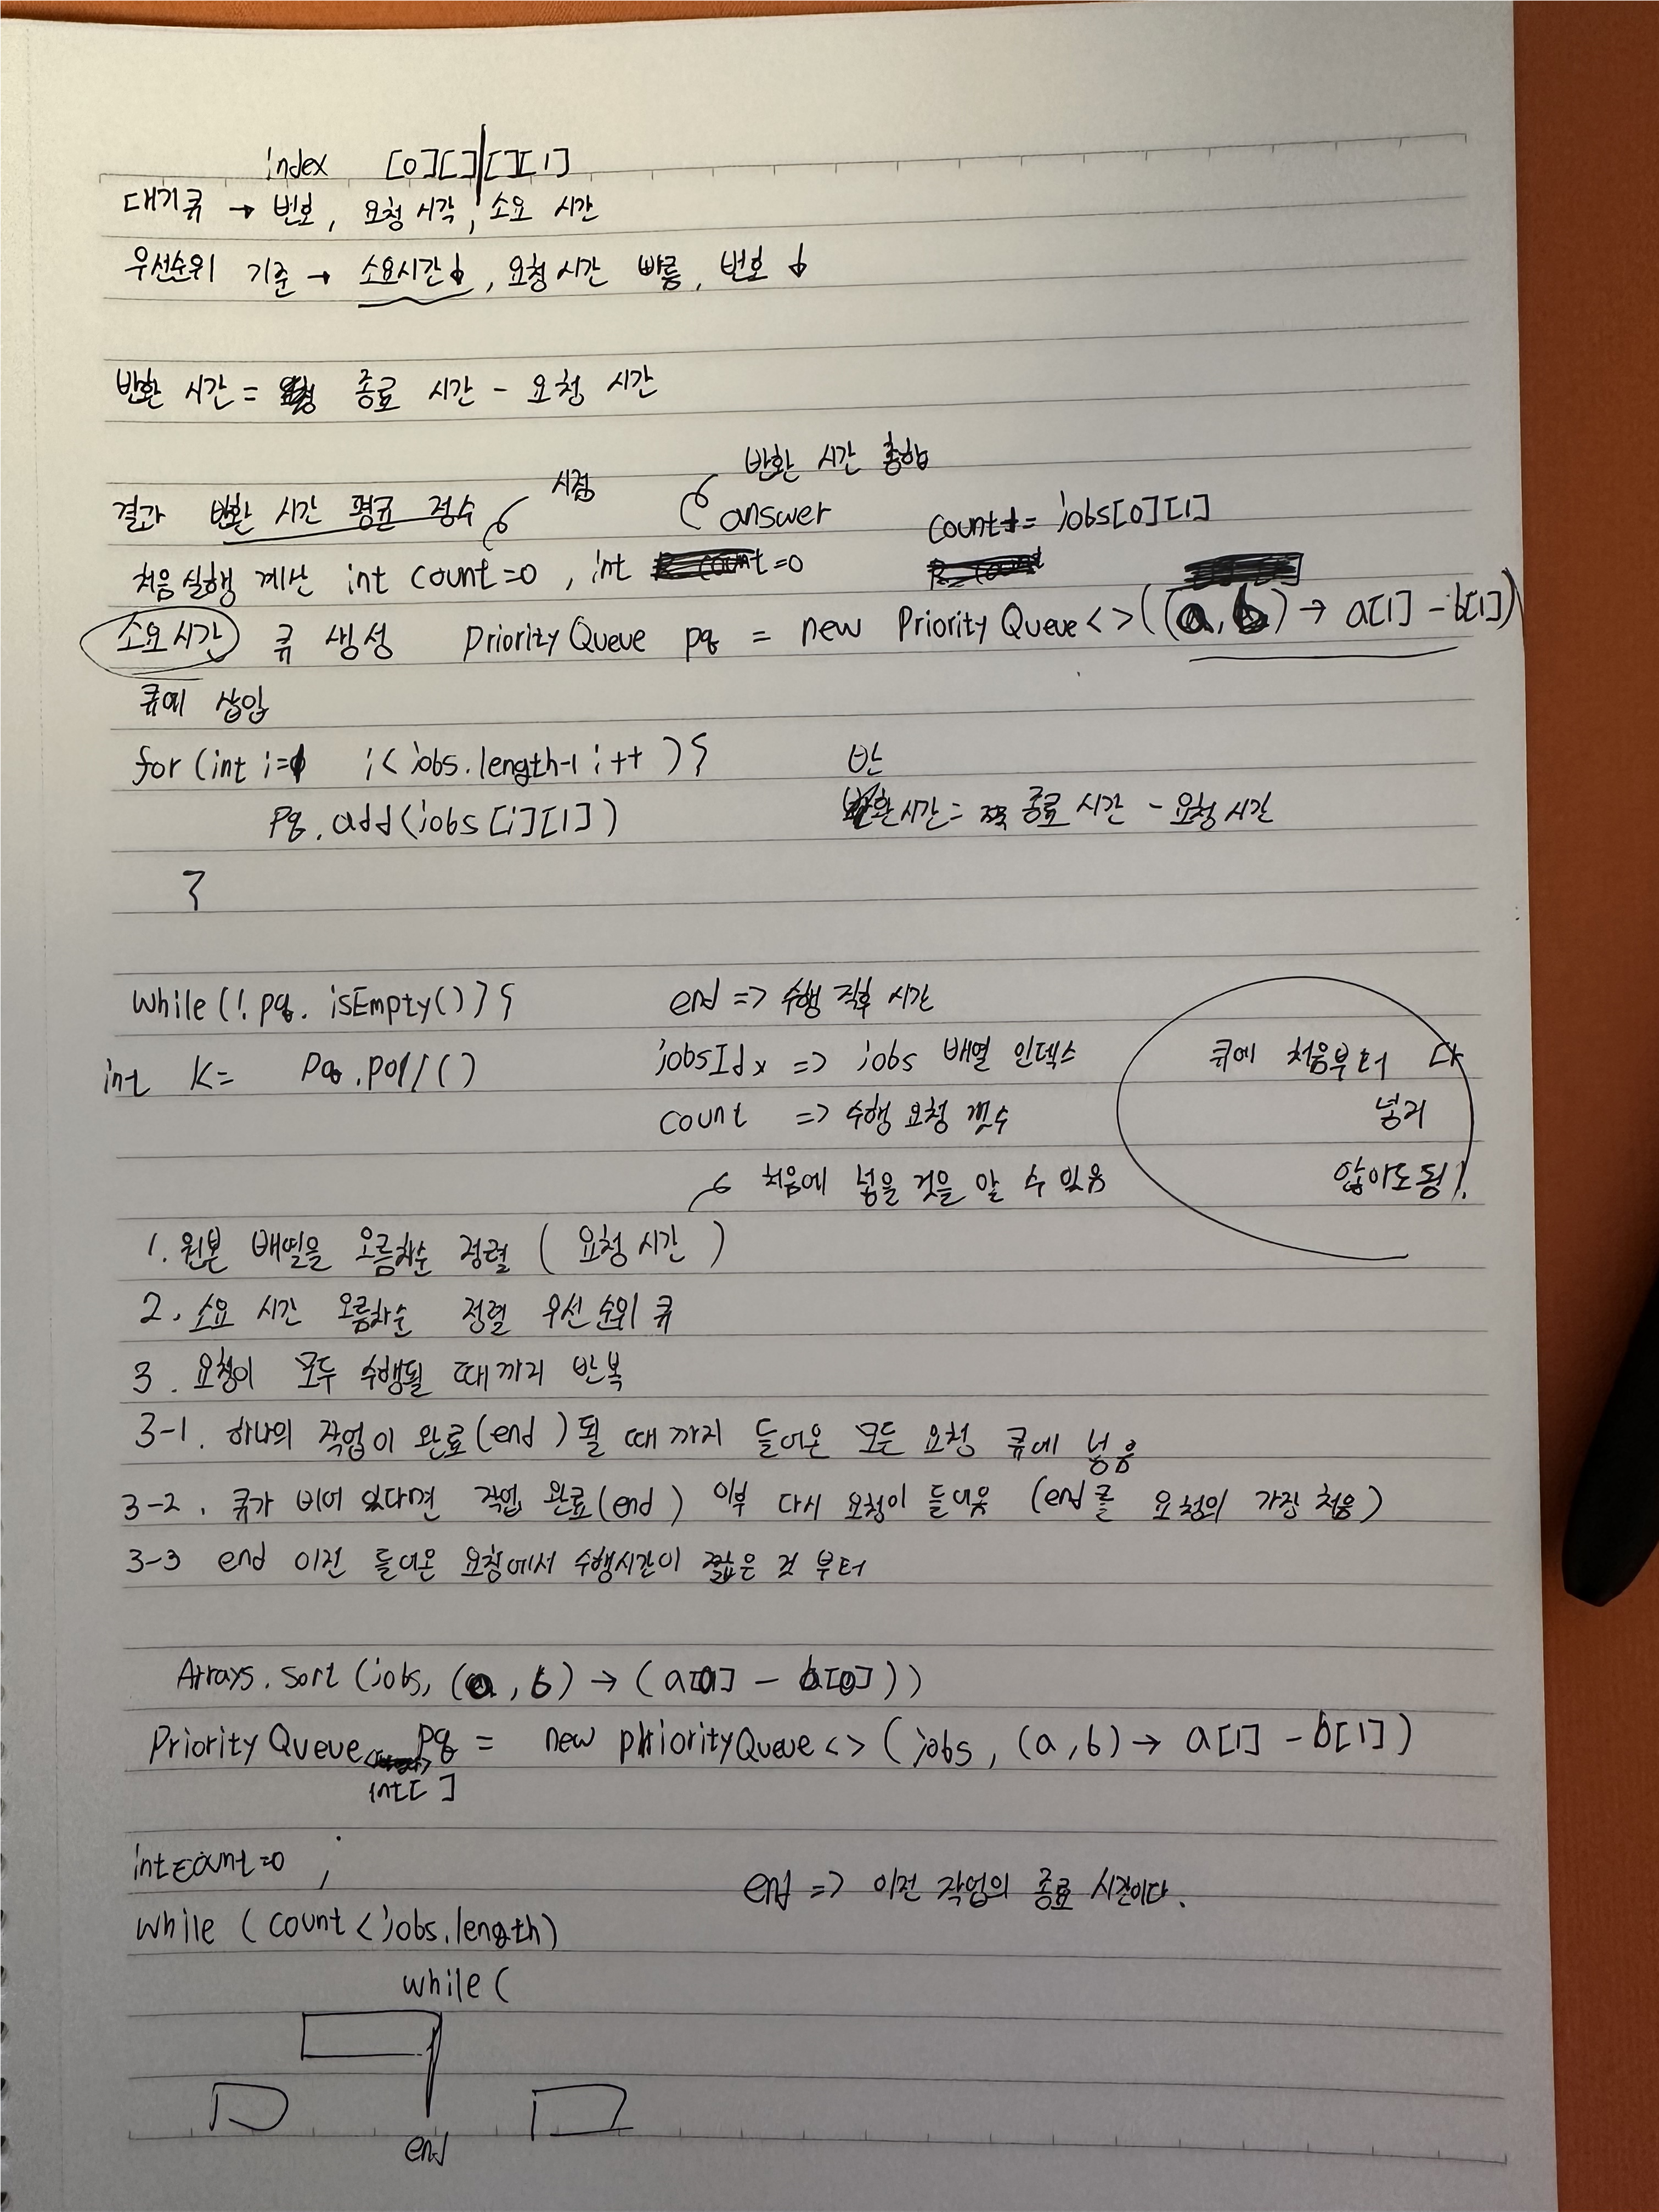 index [0][] [][1]
대기큐 → 번호, 요청 시각, 소요 시간
우선순위 기준 → 소요시간↓, 요청시간 빠름, 번호 ↓
반환 시간 = 종료 시간 - 요청 시간
시점 반환 시간 총합
결과 반환 시간 평균 정수 answer count+= jobs[0][1]
처음 실행 계산 int count=0, int =0
소요시간 큐 생성 PriorityQueue pq = new PriorityQueue<>((a,b) → a[1] - b[1])
큐에 삽입
for (int i= i<jobs.length-1 i++ ){ 반
pq.add(jobs[i][1]) 반환시간= 종료 시간 - 요청 시간
}
while(!pq. isEmpty()){ end => 수행 직후 시간
int K= pq.poll() jobsIdx => jobs 배열 인덱스 큐에 처음부터 다
count => 수행 요청 갯수 넣지
처음에 넣을 것을 알 수 있음 않아도됨!
1. 원본 배열을 오름차순 정렬 ( 요청 시간 )
2. 소요 시간 오름차순 정렬 우선 순위 큐
3. 요청이 모두 수행될 때까지 반복
3-1. 하나의 작업이 완료(end)될 때 까지 들어온 모든 요청 큐에 넣음
3-2. 큐가 비어 있다면 작업 완료(end) 이후 다시 요청이 들어옴 (end를 요청의 가장 처음)
3-3 end 이전 들어온 요청에서 수행시간이 짧은 것 부터
Arrays.sort(jobs, (a,b) → (a[0] - b[0]))
PriorityQueue pq = new priorityQueue<> (jobs, (a,b) → a[1] - b[1])
int[]
int count=0 ;
end => 이전 작업의 종료 시간이다.
while (count < jobs.length)
while (
end